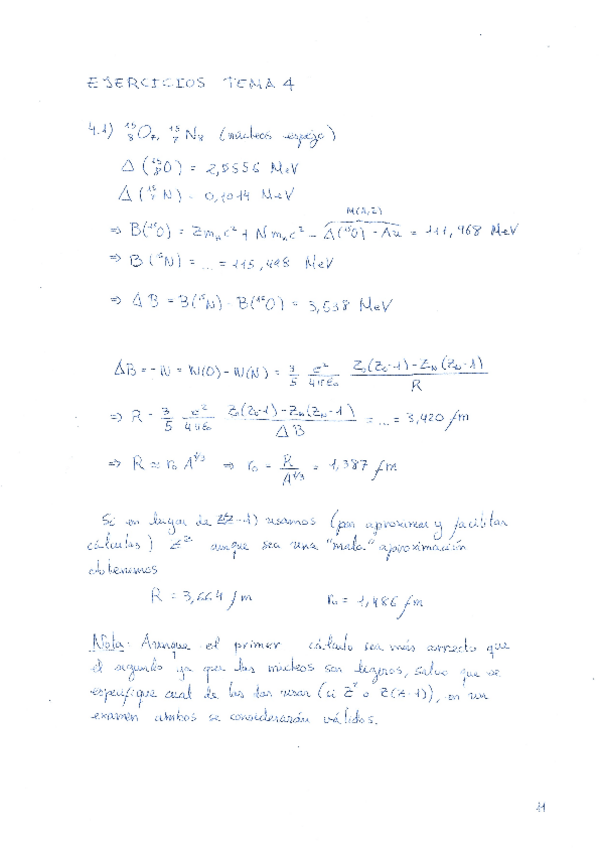 EJERCICIOS TEMA 4
4.1) ¹⁵₈O₇, ¹⁵₇N₈ (núcleos espejo)
Δ(¹⁵₈O) = 2,8556 MeV
Δ(¹⁵₇N) = 0,1014 MeV
M(A,Z)
⇒ B(¹⁵O) = Z mₕc² + N mₙc² - Δ(¹⁵O) - Au = 111,968 MeV
⇒ B(¹⁵N) = ... = 115,498 MeV
⇒ ΔB = B(¹⁵N) - B(¹⁵O) = 3,538 MeV
ΔB = - W = W(O) - W(N) = 3/5 e²/4πε₀ (Z₀(Z₀-1) - Z_N(Z_N-1))/R
⇒ R = 3/5 e²/4πε₀ (Z₀(Z₀-1) - Z_N(Z_N-1))/ΔB = ... = 3,420 fm
⇒ R ≈ r₀ A^(1/3) ⇒ r₀ = R/A^(1/3) = 1,387 fm
Si en lugar de Z(Z-1) usamos (por aproximar y facilitar
cálculos) Z² aunque sea una "mala" aproximación
obtenemos
R = 3,664 fm r₀ = 1,486 fm
Nota: Aunque el primer cálculo sea más correcto que
el segundo ya que los núcleos son ligeros, salvo que se
especifique cual de los dos usar (si Z² o Z(Z-1)), en un
examen ambos se considerarán válidos.
11